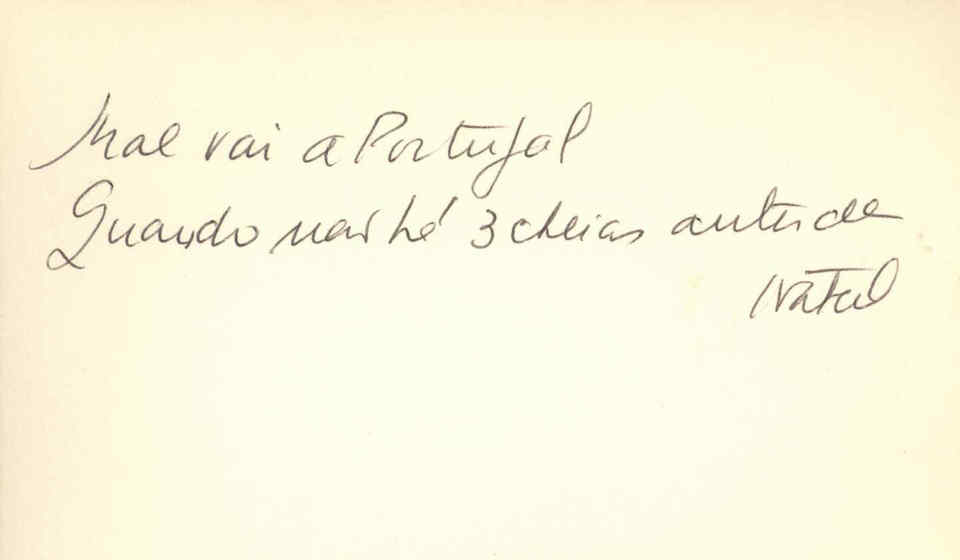 Mal vai a Portugal
Quando não há 3 cheias antes de
Natal